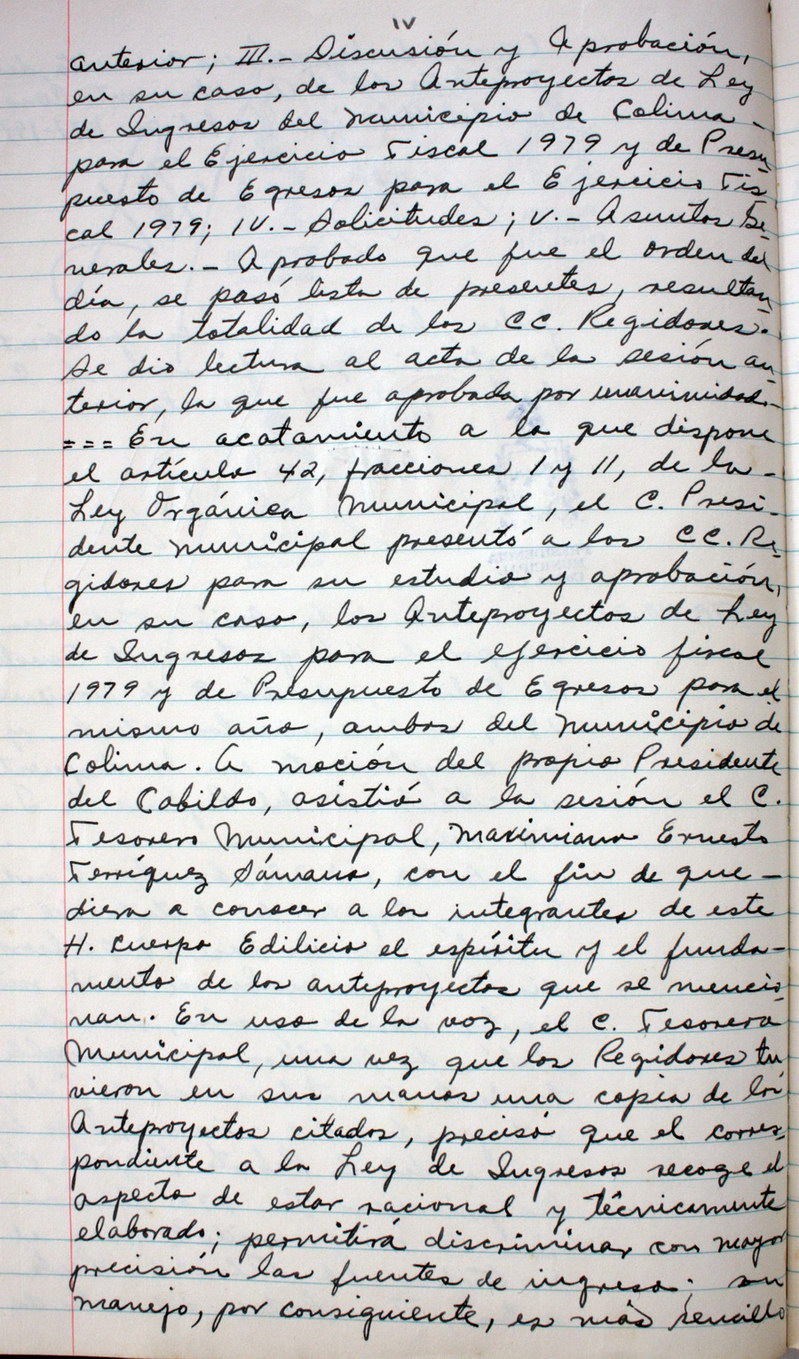 IV
anterior; III.- Discusión y Aprobación,
en su caso, de los Anteproyectos de Ley
de Ingresos del Municipio de Colima -
para el Ejercicio Fiscal 1979 y de Presu-
puesto de Egresos para el Ejercicio Fis-
cal 1979; IV.- Solicitudes; V.- Asuntos Ge-
nerales.- Aprobado que fue el orden del
día, se pasó lista de presentes, resultan-
do la totalidad de los CC. Regidores.
Se dio lectura al acta de la sesión an-
terior, la que fue aprobada por unanimidad.-
=== En acatamiento a lo que dispone
el artículo 42, fracciones I y II, de la -
Ley Orgánica Municipal, el C. Presi-
dente Municipal presentó a los CC. Re-
gidores para su estudio y aprobación,
en su caso, los Anteproyectos de Ley
de Ingresos para el ejercicio fiscal
1979 y de Presupuesto de Egresos para el
mismo año, ambos del Municipio de
Colima. A moción del propio Presidente
del Cabildo, asistió a la sesión el C.
Tesorero Municipal, Maximiano Ernesto
Terríquez Sámano, con el fin de que -
diera a conocer a los integrantes de este
H. Cuerpo Edilicio el espíritu y el funda-
mento de los anteproyectos que se mencio-
nan. En uso de la voz, el C. Tesorero
Municipal, una vez que los Regidores tu-
vieron en sus manos una copia de los
Anteproyectos citados, precisó que el corres-
pondiente a la Ley de Ingresos recoge el
aspecto de estar racional y técnicamente
elaborado; permitirá discriminar con mayor
precisión las fuentes de ingreso; su
manejo, por consiguiente, es más sencillo